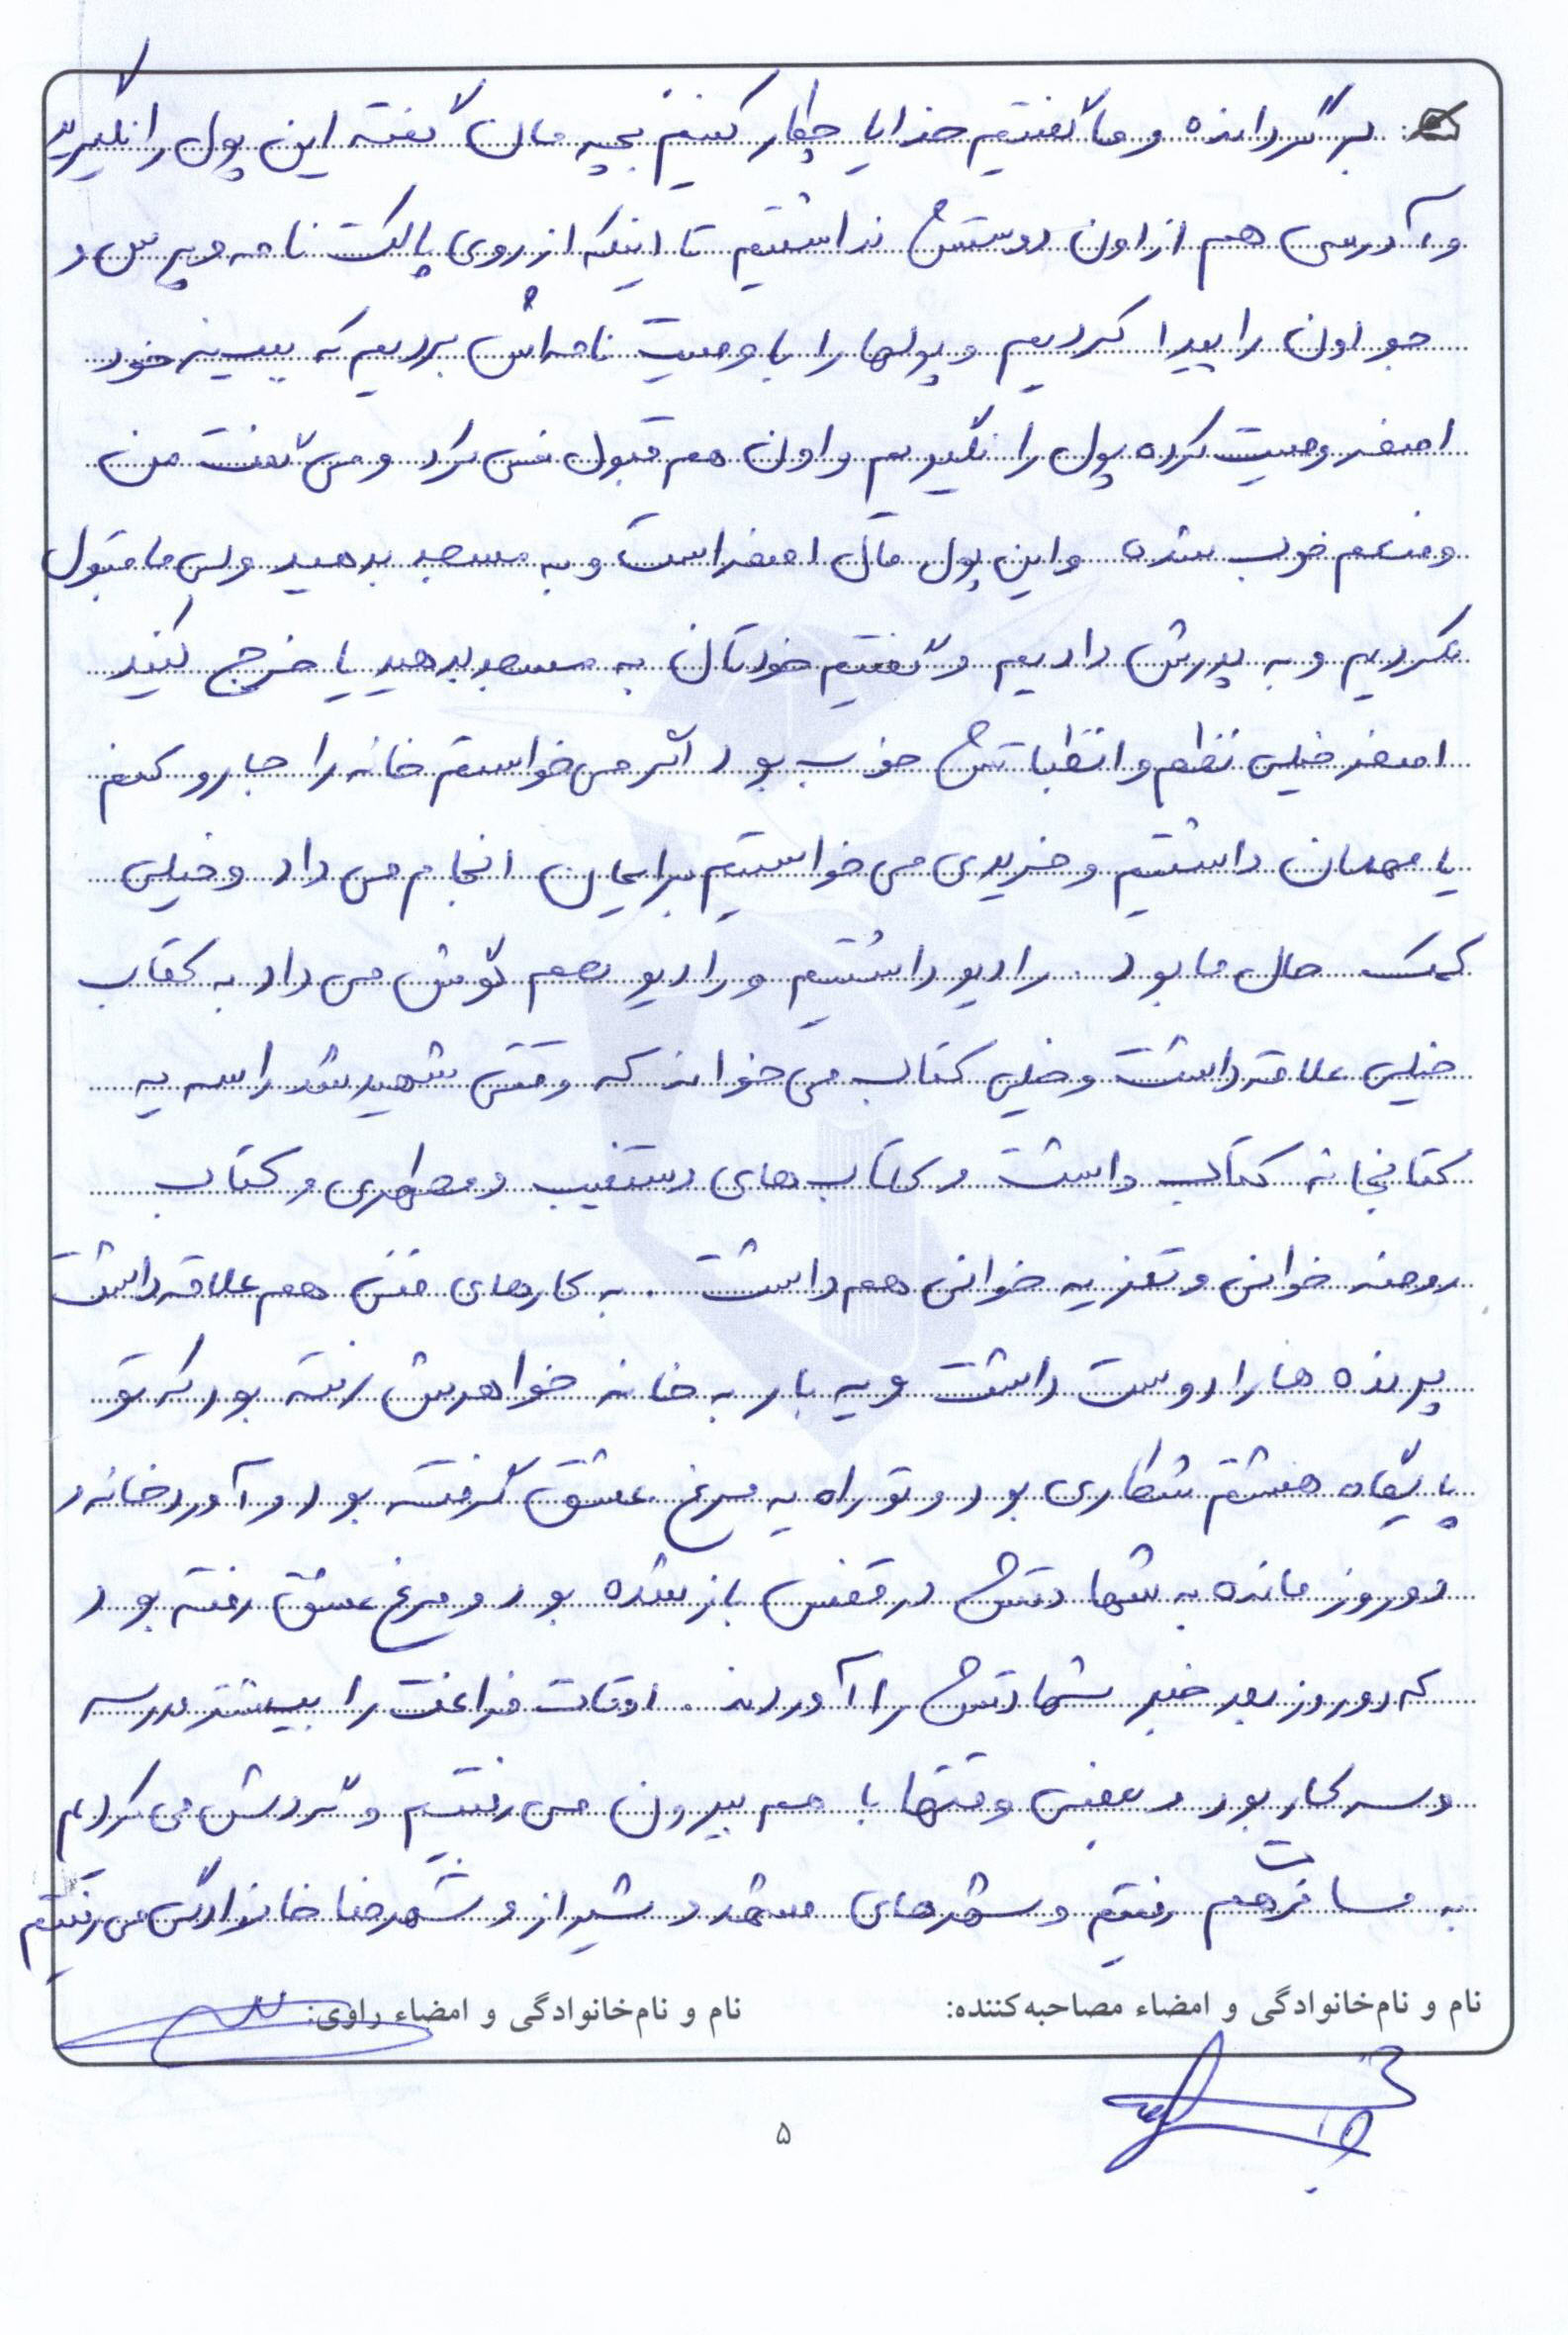 برگردانده و ما گفتیم خدایا چکار کنیم بچه مان گفته این پول را نگیرید
و آدرسی هم از اون دوستش نداشتیم تا اینکه از روی پاکت نامه و پرس و
جو اون را پیدا کردیم و پولها را با وصیت نامه اش بردیم که ببینه خود
اصغر وصیت کرده پول را نگیریم و اون هم قبول نمی کرد و می گفت من
وضعم خوب شده و این پول مال اصغر است و به مسجد بدهید ولی ما قبول
نکردیم و به پدرش دادیم و گفتیم خودتان به مسجد بدهید یا خرج کنید
اصغر خیلی نظم و انظباتش خوب بود اگر می خواستم خانه را جارو کنم
یا مهمان داشتیم و خریدی می خواستیم برایمان انجام می داد و خیلی
کمک حال ما بود . رادیو داشتیم و رادیو هم گوش می داد به کتاب
خیلی علاقه داشت و خیلی کتاب می خواند که وقتی شهید شد راسه یه
کتابخانه کتاب داشت و کتاب های دستغیب و مطهری و کتاب
روضه خوانی و تعزیه خوانی هم داشت . به کارهای فنی هم علاقه داشت
پرنده ها را دوست داشت و یه بار به خانه خواهرش رفته بود که تو
پایگاه هشتم شکاری بود و تو راه یه مرغ عشق گرفته بود و آورد خانه و
دو روز مانده به شهادتش در قفس باز شده بود و مرغ عشق رفته بود
که دو روز بعد خبر شهادتش را آوردند . اوقات فراغت را بیشتر مدرسه
و سر کار بود و بعضی وقتها با هم بیرون می رفتیم و گردش می کردیم
به مسافرت هم رفتیم و شهرهای مشهد و شیراز و شهرضا خانوادگی می رفتیم
نام و نام‌خانوادگی و امضاء مصاحبه‌کننده: نام و نام‌خانوادگی و امضاء راوی:
۵